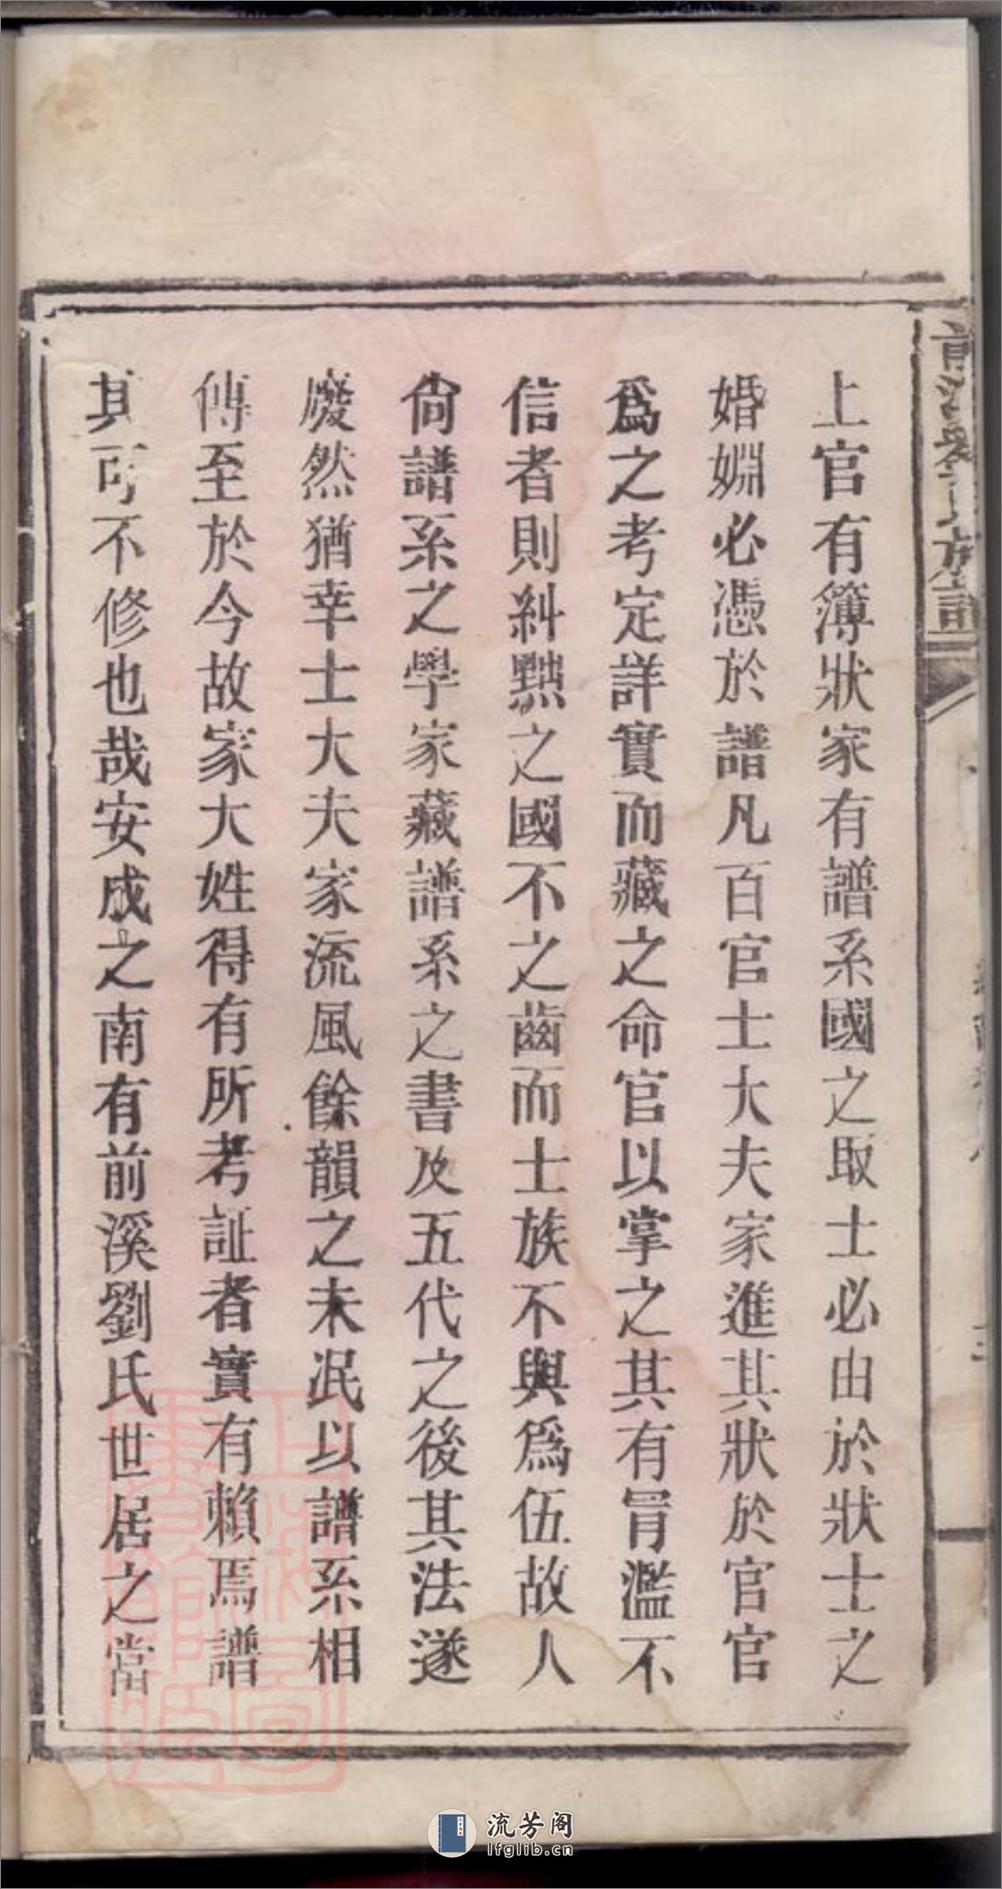 上官有簿狀家有譜系國之取士必由於狀士之
婚婣必憑於譜凡百官士大夫家進其狀於官官
爲之考定詳實而藏之命官以掌之其有冐濫不
信者則糾黜之國不之齒而士族不與爲伍故人
尙譜系之學家藏譜系之書及五代之後其法遂
廢然猶幸士大夫家流風餘韻之未泯以譜系相
傳至於今故家大姓得有所考証者實有賴焉譜
其可不修也哉安成之南有前溪劉氏世居之當
上海圖書館藏
流芳阁
lfglib.cn